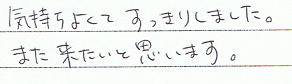 気持ちよくてすっきりしました。
また来たいと思います。